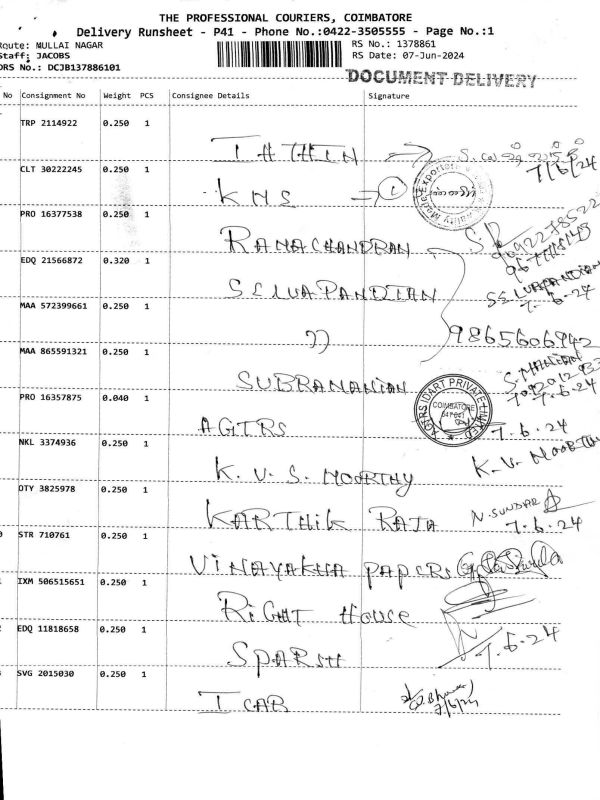 THE PROFESSIONAL COURIERS, COIMBATORE
Delivery Runsheet - P41 - Phone No.:0422-3505555 - Page No.:1
Route: MULLAI NAGAR
RS No.: 1378861
Staff: JACOBS
RS Date: 07-Jun-2024
DRS No.: DCJB137886101
DOCUMENT DELIVERY
No Consignment No Weight PCS Consignee Details Signature
TRP 2114922 0.250 1
7/6/24
CLT 30222245 0.250 1 KNS 1
PRO 16377538 0.250 1 RAMACHANDRAN
EDQ 21566872 0.320 1 SELVAPANDIAN
SELVAPANDIAN
7.6.24
MAA 572399661 0.250 1 ))
9865606942
MAA 865591321 0.250 1 SUBRAMANIAN
7.6.24
PRO 16357875 0.040 1 AGIRS
AGIRS IDART PRIVATE LIMITED
COIMBATORE
7.6.24
NKL 3374936 0.250 1 K. V. S. MOORTHY
K.V. MOORTHY
OTY 3825978 0.250 1 KARTHIK RAJA
N. SUNDAR
7.6.24
STR 710761 0.250 1 VINAYAKHA PAPERS
IXM 506515651 0.250 1 RIGHT House
EDQ 11818658 0.250 1 SPARSH
7.6.24
SVG 2015030 0.250 1 I CAR
7/6/24